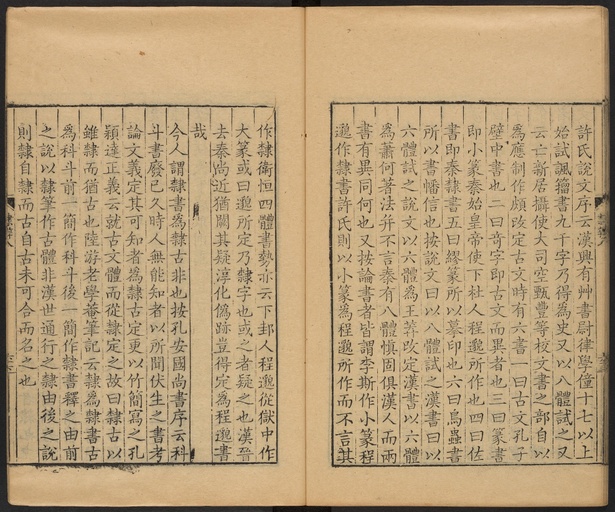 許氏說文序云漢興有艸書尉律學僮十七以上
始試諷籀書九千字乃得為史又以八體試之又
云亡新居攝使大司空甄豐等校文書之部自以
為應制作頗改定古文時有六書一曰古文孔子
壁中書也二曰奇字即古文而異者也三曰篆書
即小篆秦始皇帝使下杜人程邈所作也四曰佐
書即秦隸書五曰繆篆所以摹印也六曰鳥蟲書
所以書幡信也按說文曰以八體試之漢書曰以
六體試之說文以六體為王莽改定漢書以六體
為蕭何著法并不言秦有八體慎固俱漢人而兩
書有異同何也又按論書者皆謂李斯作小篆程
邈作隸書許氏則以小篆為程邈所作而不言其
作隸衛恒四體書勢亦云下邽人程邈從獄中作
大篆或曰邈所定乃隸字也或之者疑之也漢晉
去秦尚近猶闕其疑淳化偽跡豈得定為程邈書
哉
今人謂隸書為隸古非也按孔安國尚書序云科
斗書廢已久時人無能知者以所聞伏生之書考
論文義定其可知者為隸古定更以竹簡寫之孔
穎達正義云就古文體而從隸定之故曰隸古以
雖隸而猶古也陸游老學菴筆記云隸為隸書古
為科斗前一簡作科斗後一簡作隸書釋之由前
之說以隸筆作古體非漢世通行之隸由後之說
則隸自隸而古自古未可合而名之也